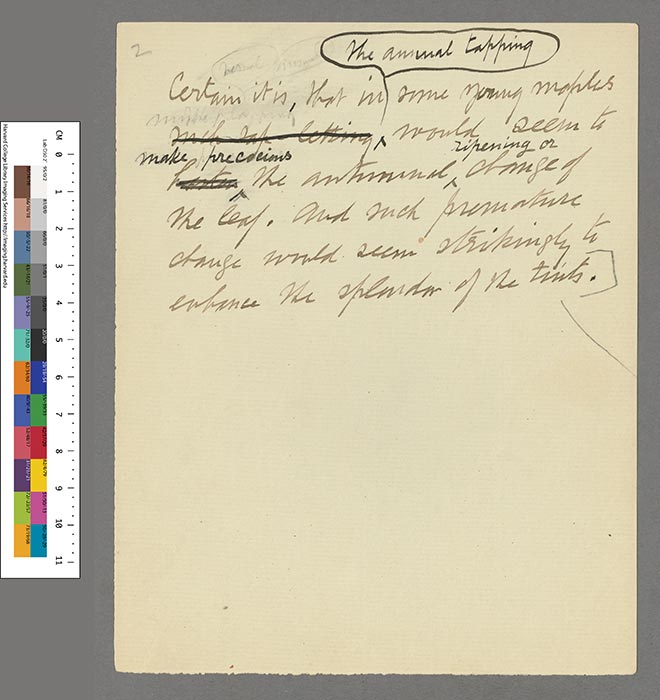 2
the annual tapping
Certain it is, that in some young maples
such sap-letting, would seem to
make precocious ripening or
hasten the autumnal change of
the leaf. And such premature
change would seem strikingly to
enhance the splendor of the tints.
CM 0 1 2 3 4 5 6 7 8 9 10 11
Harvard College Library Imaging Services http://imaging.harvard.edu